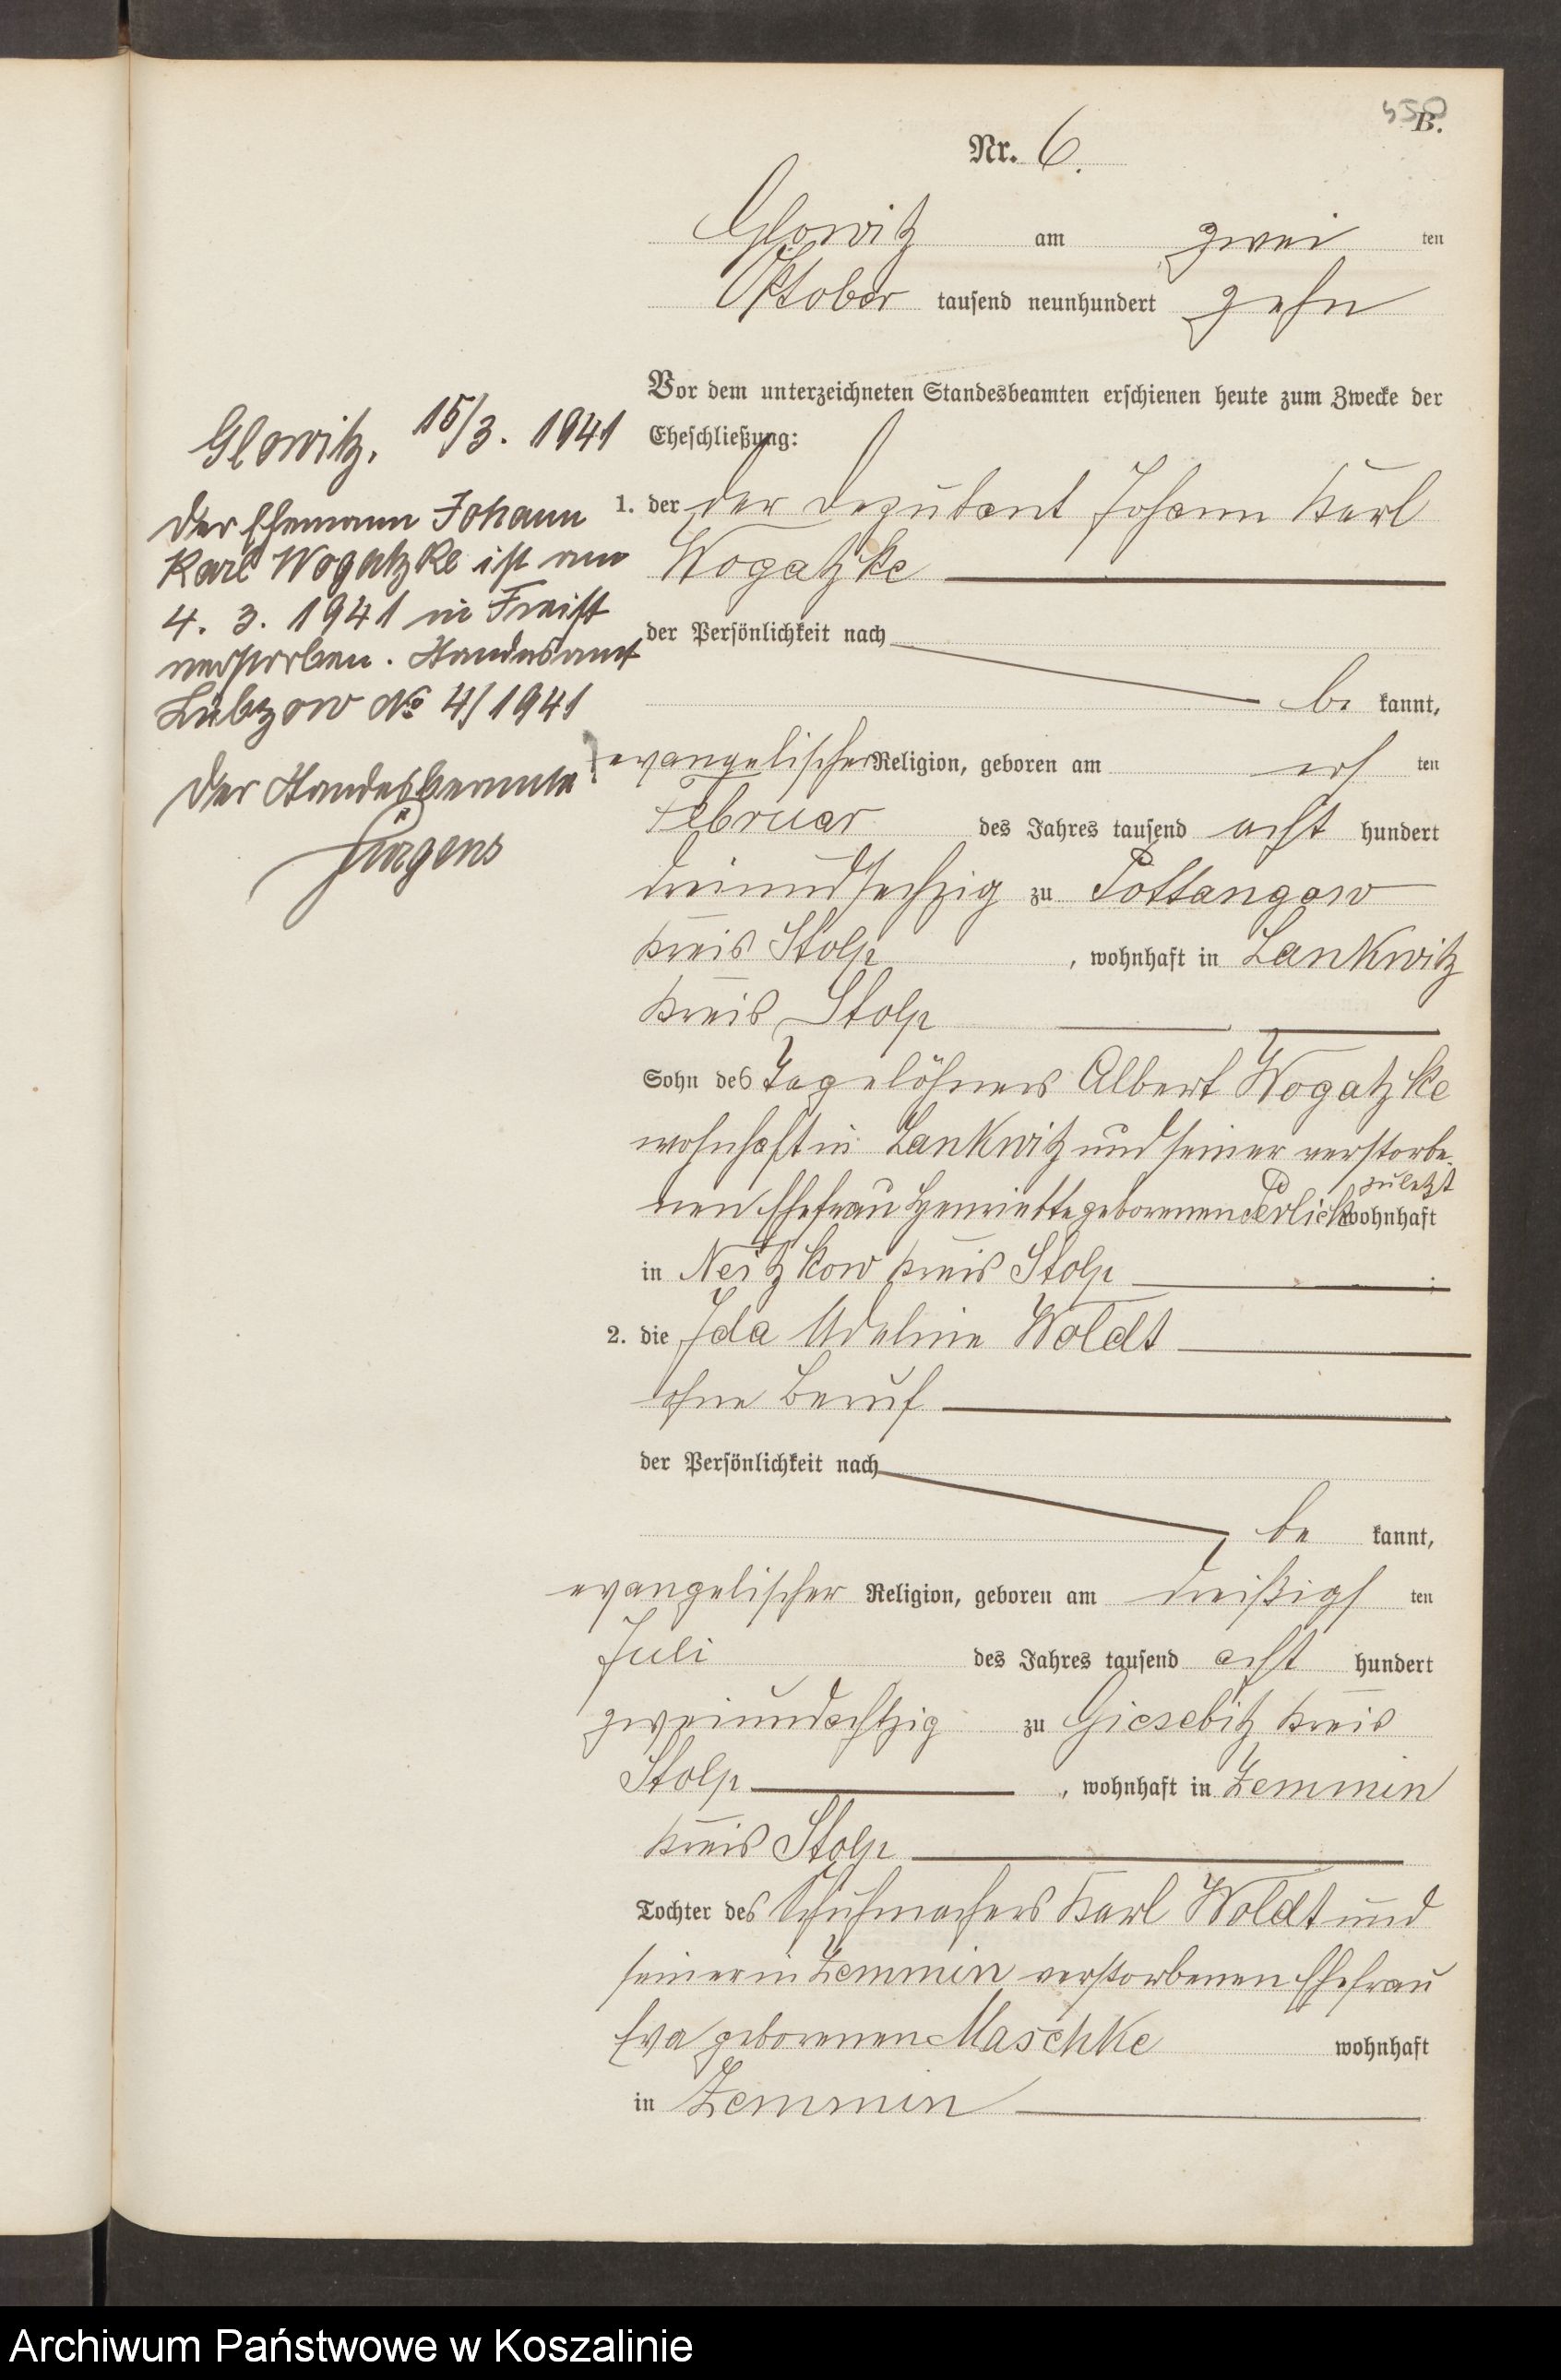 B.
Nr. 6.
Glowitz am zwei ten
Oktober tausend neunhundert zehn
Vor dem unterzeichneten Standesbeamten erschienen heute zum Zwecke der
Eheschließung:
1. der der Deputant Johann Karl
Wogatzke
der Persönlichkeit nach
be kannt,
evangelischer Religion, geboren am ers ten
Februar des Jahres tausend acht hundert
dreiundsechzig zu Pottangow
Kreis Stolp, wohnhaft in Lankwitz
Kreis Stolp
Sohn des Tagelöhners Albert Wogatzke
wohnhaft in Lankwitz und seiner verstorbe-
nen Ehefrau Henriette geborenen Perlick zuletzt wohnhaft
in Neitzkow Kreis Stolp;
2. die Ida Adeline Woldt
ohne Beruf
der Persönlichkeit nach
be kannt,
evangelischer Religion, geboren am dreißigs ten
Juli des Jahres tausend acht hundert
zweiundachtzig zu Giesebitz Kreis
Stolp, wohnhaft in Zemmin
Kreis Stolp
Tochter des Schuhmachers Karl Woldt und
seiner in Zemmin verstorbenen Ehefrau
Eva geborenen Maschke wohnhaft
in Zemmin
Glowitz, 15/3. 1941
Der Ehemann Johann
Karl Wogatzke ist am
4. 3. 1941 in Freist
verstorben. Standesamt
Lübzow No 4/1941
Der Standesbeamte
Jürgens
Archiwum Państwowe w Koszalinie